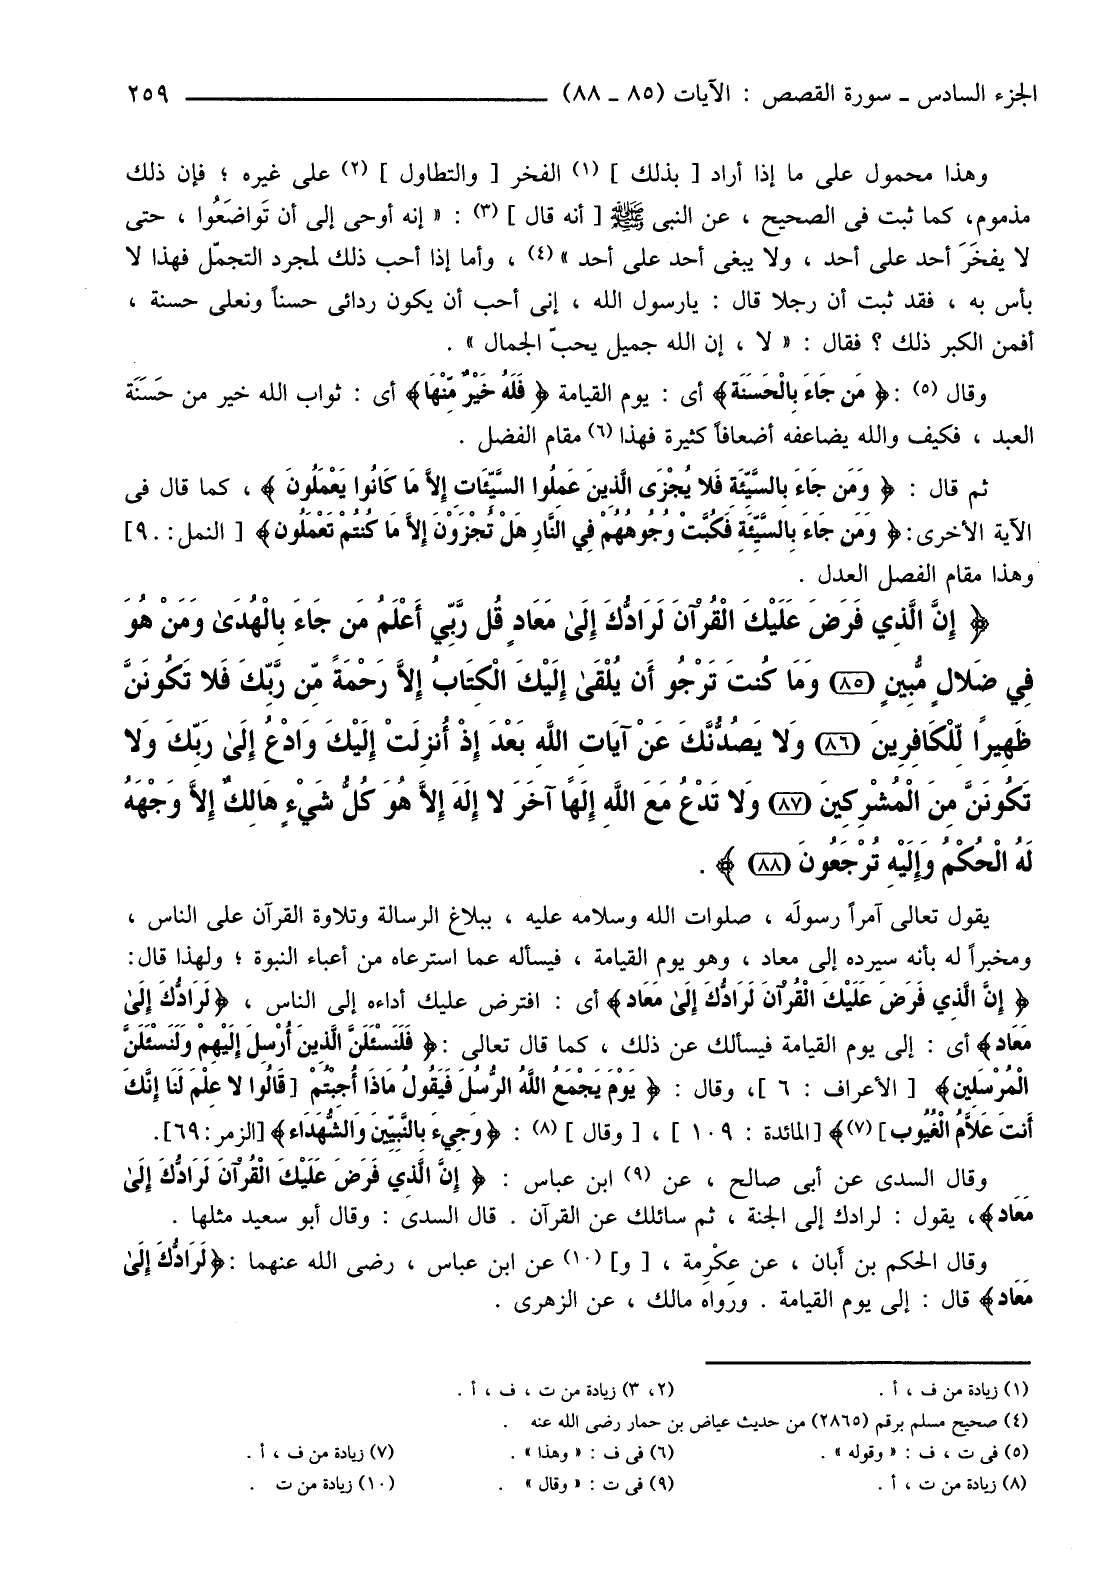 الجزء السادس ـ سورة القصص : الآيات (٨٥ ـ ٨٨) ٢٥٩
وهذا محمول على ما إذا أراد [ بذلك ] (١) الفخر [ والتطاول ] (٢) على غيره ؛ فإن ذلك
مذموم، كما ثبت فى الصحيح ، عن النبى ﷺ [ أنه قال ] (٣) : « إنه أوحى إلى أن تَواضَعُوا ، حتى
لا يفخَرَ أحد على أحد ، ولا يبغى أحد على أحد » (٤) ، وأما إذا أحب ذلك لمجرد التجمّل فهذا لا
بأس به ، فقد ثبت أن رجلا قال : يارسول الله ، إنى أحب أن يكون ردائى حسناً ونعلى حسنة ،
أفمن الكبر ذلك ؟ فقال : « لا ، إن الله جميل يحبّ الجمال » .
وقال (٥) :﴿ مَن جَاءَ بِالْحَسَنَة﴾ أى : يوم القيامة ﴿ فَلَهُ خَيْرٌ مِّنْهَا﴾ أى : ثواب الله خير من حَسَنَة
العبد ، فكيف والله يضاعفه أضعافاً كثيرة فهذا (٦) مقام الفضل .
ثم قال : ﴿ وَمَن جَاءَ بِالسَّيِّئَةِ فَلا يُجْزَى الَّذِينَ عَمِلُوا السَّيِّئَاتِ إِلاَّ مَا كَانُوا يَعْمَلُونَ ﴾ ، كما قال فى
الآية الأخرى:﴿ وَمَن جَاءَ بِالسَّيِّئَةِ فَكُبَّتْ وُجُوهُهُمْ فِي النَّارِ هَلْ تُجْزَوْنَ إِلاَّ مَا كُنتُمْ تَعْمَلُون﴾ [ النمل: ٩٠]
وهذا مقام الفصل العدل .
﴿ إِنَّ الَّذِي فَرَضَ عَلَيْكَ الْقُرْآنَ لَرَادُّكَ إِلَىٰ مَعَادٍ قُل رَّبِّي أَعْلَمُ مَن جَاءَ بِالْهُدَىٰ وَمَنْ هُوَ
فِي ضَلالٍ مُّبِينٍ (٨٥) وَمَا كُنتَ تَرْجُو أَن يُلْقَىٰ إِلَيْكَ الْكِتَابُ إِلاَّ رَحْمَةً مِّن رَّبِّكَ فَلا تَكُونَنَّ
ظَهِيرًا لِّلْكَافِرِينَ (٨٦) وَلا يَصُدُّنَّكَ عَنْ آيَاتِ اللَّهِ بَعْدَ إِذْ أُنزِلَتْ إِلَيْكَ وَادْعُ إِلَىٰ رَبِّكَ وَلا
تَكُونَنَّ مِنَ الْمُشْرِكِينَ (٨٧) وَلا تَدْعُ مَعَ اللَّهِ إِلَهًا آخَرَ لا إِلَهَ إِلاَّ هُوَ كُلُّ شَيْءٍ هَالِكٌ إِلاَّ وَجْهَهُ
لَهُ الْحُكْمُ وَإِلَيْهِ تُرْجَعُونَ (٨٨) ﴾ .
يقول تعالى آمراً رسولَه ، صلوات الله وسلامه عليه ، ببلاغ الرسالة وتلاوة القرآن على الناس ،
ومخبراً له بأنه سيرده إلى معاد ، وهو يوم القيامة ، فيسأله عما استرعاه من أعباء النبوة ؛ ولهذا قال:
﴿ إِنَّ الَّذِي فَرَضَ عَلَيْكَ الْقُرْآنَ لَرَادُّكَ إِلَىٰ مَعَاد﴾ أى : افترض عليك أداءه إلى الناس ، ﴿لَرَادُّكَ إِلَىٰ
مَعَاد﴾ أى : إلى يوم القيامة فيسألك عن ذلك ، كما قال تعالى :﴿ فَلَنَسْئَلَنَّ الَّذِينَ أُرْسِلَ إِلَيْهِمْ وَلَنَسْئَلَنَّ
الْمُرْسَلِين﴾ [ الأعراف : ٦ ]، وقال : ﴿ يَوْمَ يَجْمَعُ اللَّهُ الرُّسُلَ فَيَقُولُ مَاذَا أُجِبْتُمْ [قَالُوا لا عِلْمَ لَنَا إِنَّكَ
أَنتَ عَلاَّمُ الْغُيُوب] (٧)﴾ [المائدة : ١٠٩ ] ، [ وقال ] (٨) : ﴿وَجِيءَ بِالنَّبِيِّينَ وَالشُّهَدَاء﴾ [الزمر: ٦٩].
وقال السدى عن أبى صالح ، عن (٩) ابن عباس : ﴿ إِنَّ الَّذِي فَرَضَ عَلَيْكَ الْقُرْآنَ لَرَادُّكَ إِلَىٰ
مَعَاد﴾، يقول : لرادك إلى الجنة ، ثم سائلك عن القرآن . قال السدى : وقال أبو سعيد مثلها .
وقال الحكم بن أبان ، عن عِكْرِمة ، [ و] (١٠) عن ابن عباس ، رضى الله عنهما :﴿لَرَادُّكَ إِلَىٰ
مَعَاد﴾ قال : إلى يوم القيامة . ورَواه مالك ، عن الزهرى .
(١) زيادة من ف ، أ . (٢، ٣) زيادة من ت ، ف ، أ .
(٤) صحيح مسلم برقم (٢٨٦٥) من حديث عياض بن حمار رضى الله عنه .
(٥) فى ت ، ف : « وقوله » . (٦) فى ف : « وهذا » . (٧) زيادة من ف ، أ .
(٨) زيادة من ت ، أ . (٩) فى ت : « وقال » . (١٠) زيادة من ت .